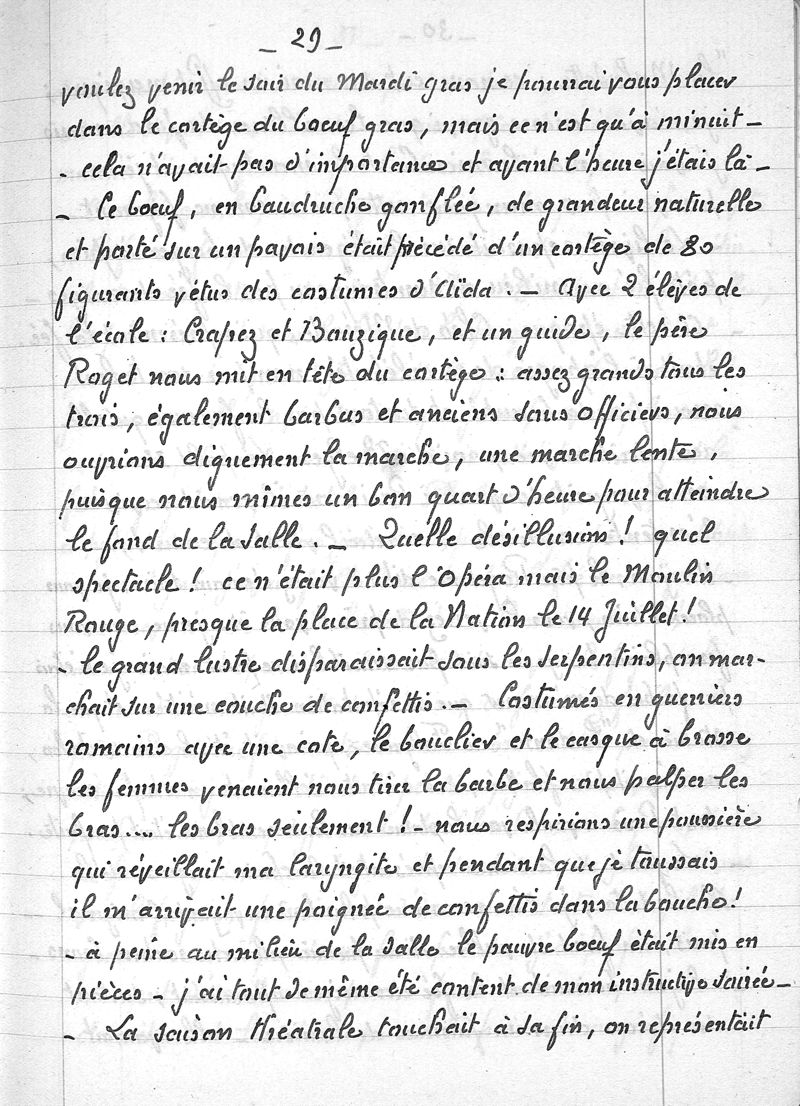 _ 29 _
voulez venir le soir du Mardi gras je pourrai vous placer
dans le cortège du boeuf gras, mais ce n'est qu'à minuit _
- cela n'avait pas d'importance et avant l'heure j'étais là _
_ Ce boeuf, en baudruche gonflée, de grandeur naturelle
et porté sur un pavois était précédé d'un cortège de 80
figurants vêtus des costumes d'Aïda. _ Avec 2 élèves de
l'école : Crapez et Bauzique, et un guide, le père
Roget nous mit en tête du cortège : assez grands tous les
trois, également barbus et anciens sous officiers, nous
ouvrions dignement la marche, une marche lente,
puisque nous mîmes un bon quart d'heure pour atteindre
le fond de la salle. _ Quelle désillusion ! quel
spectacle ! ce n'était plus l'Opéra mais le Moulin
Rouge, presque la place de la Nation le 14 Juillet !
- le grand lustre disparaissait sous les serpentins, on mar-
chait sur une couche de confettis. _ Costumés en guerriers
romains avec une cote, le bouclier et le casque à brosse
les femmes venaient nous tirer la barbe et nous palper les
bras.... les bras seulement ! - nous respirions une poussière
qui réveillait ma laryngite et pendant que je toussais
il m'arrivait une poignée de confettis dans la bouche !
- à peine au milieu de la salle le pauvre boeuf était mis en
pièces - j'ai tout de même été content de mon instructive soirée _
_ La saison théatrale touchait à sa fin, on représentait